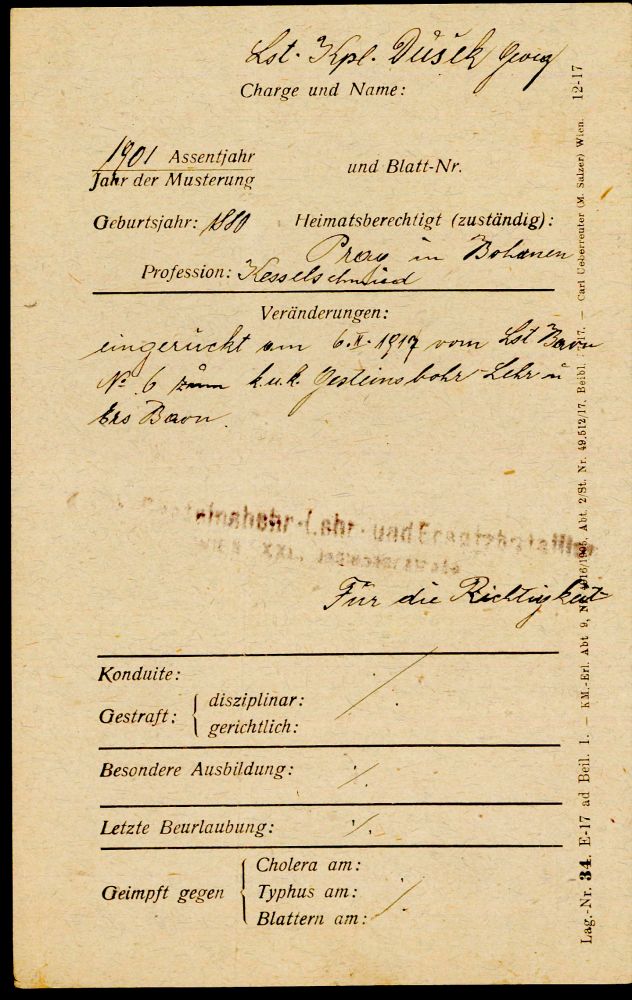 Lst. Kpl. Dušek Georg
Charge und Name:
1901 Assentjahr
Jahr der Musterung
und Blatt-Nr.
Geburtsjahr: 1880 Heimatsberechtigt (zuständig):
Prag in Böhmen
Profession: Kesselschmied
Veränderungen:
eingerückt am 6.II.1917 vom Lst Baon
№ 6 zum k.u.k. Gesteinsbohr-Lehr u
Ers Baon.
Gesteinsbohr-Lehr- und Ersatzbataillon
Für die Richtigkeit
Konduite:
Gestraft: disziplinar:
gerichtlich:
Besondere Ausbildung: ./.
Letzte Beurlaubung: ./.
Geimpft gegen Cholera am:
Typhus am:
Blattern am:
Lag.-Nr. 34. E-17 ad Beil. 1. — KM.-Erl. Abt. 9, Abt. 2/St. Nr. 49.512/17, Beibl. — Carl Ueberreuter (M. Salzer) Wien. 12-17